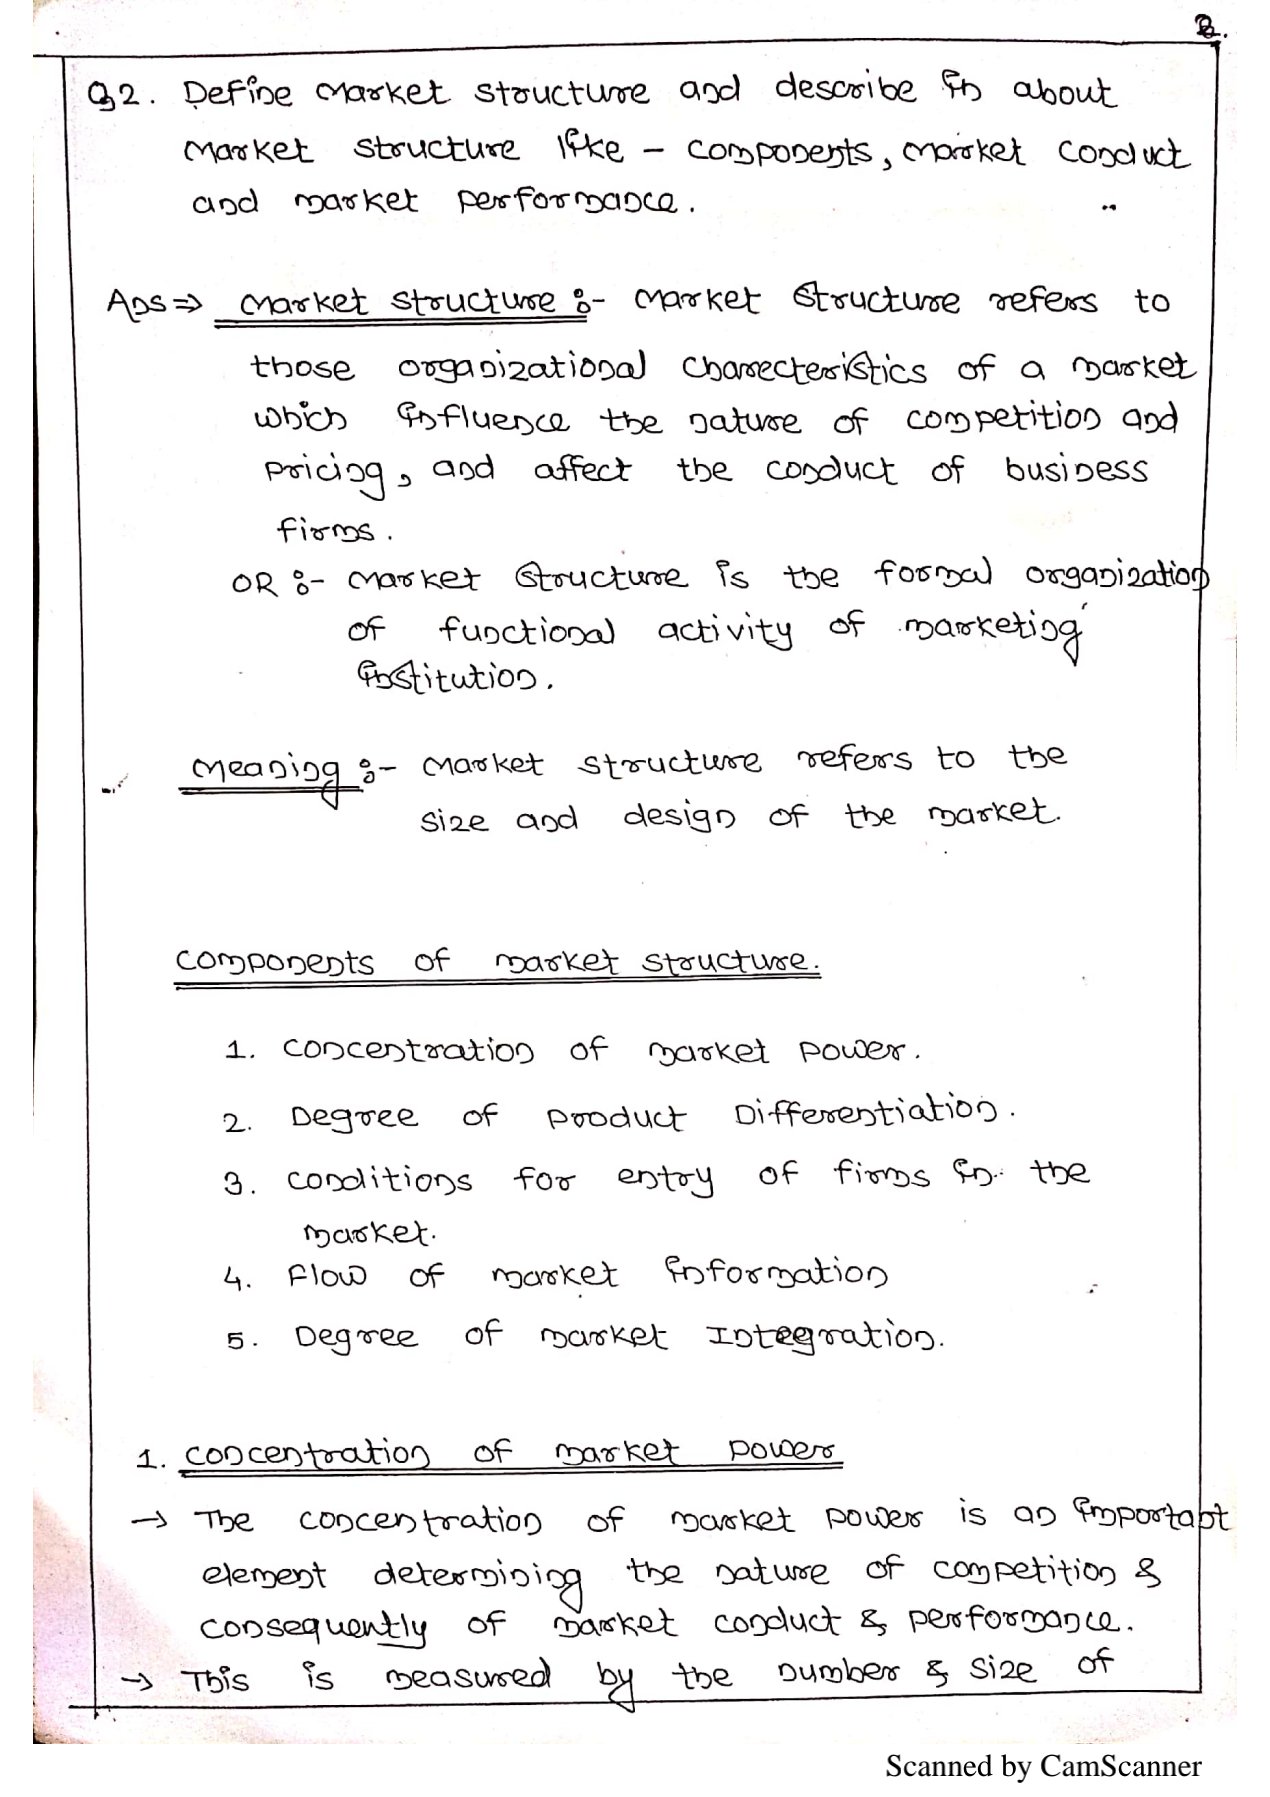 2.
Q2. Define market structure and describe in about
market structure like - components, market conduct
and market performance.
Ans⇒ market structure :- market structure refers to
those organizational charecteristics of a market
which influence the nature of competition and
pricing, and affect the conduct of business
firms.
OR :- market structure is the formal organization
of functional activity of marketing
institution.
meaning :- market structure refers to the
size and design of the market.
components of market structure.
1. concentration of market power.
2. Degree of product Differentiation.
3. conditions for entry of firms in the
market.
4. flow of market information
5. Degree of market Integration.
1. concentration of market power
→ The concentration of market power is an important
element determining the nature of competition &
consequently of market conduct & performance.
→ This is measured by the number & size of
Scanned by CamScanner